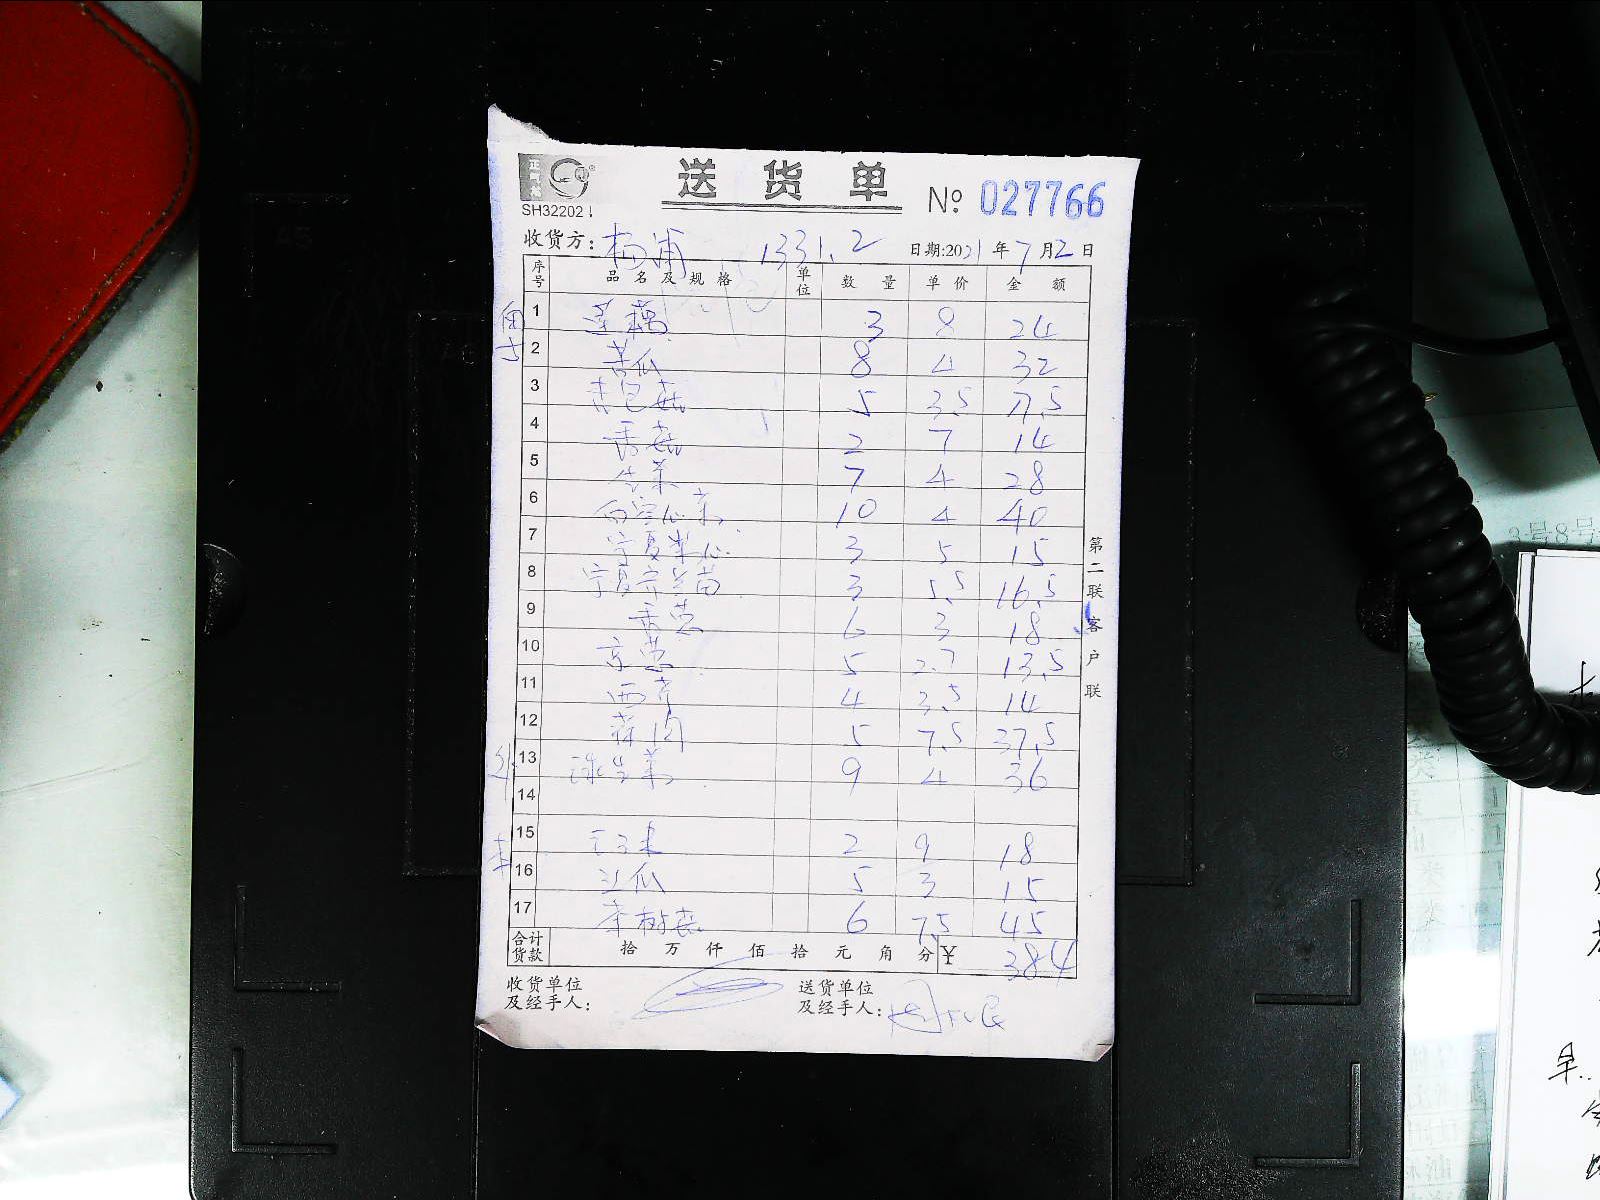 送货单 № 027766
SH32202
收货方: 杨浦 1331.2 日期:2021年7月2日
序号 品名及规格 单位 数量 单价 金额
1 莲藕 3 8 24
2 苦瓜 8 4 32
3 5 3.5 17.5
4 香菇 2 7 14
5 生菜 7 4 28
6 10 4 40
7 宁夏菜心 3 5 15
8 宁夏芥兰苗 3 5.5 16.5
9 香葱 6 3 18
10 京葱 5 2.7 13.5
11 西芹 4 3.5 14
12 蒜肉 5 7.5 37.5
13 球生菜 9 4 36
14
15 2 9 18
16 瓜 5 3 15
17 茶树菇 6 7.5 45
合计货款 拾 万 仟 佰 拾 元 角 分 ¥ 384
收货单位及经手人:
送货单位及经手人:
第二联 客户联